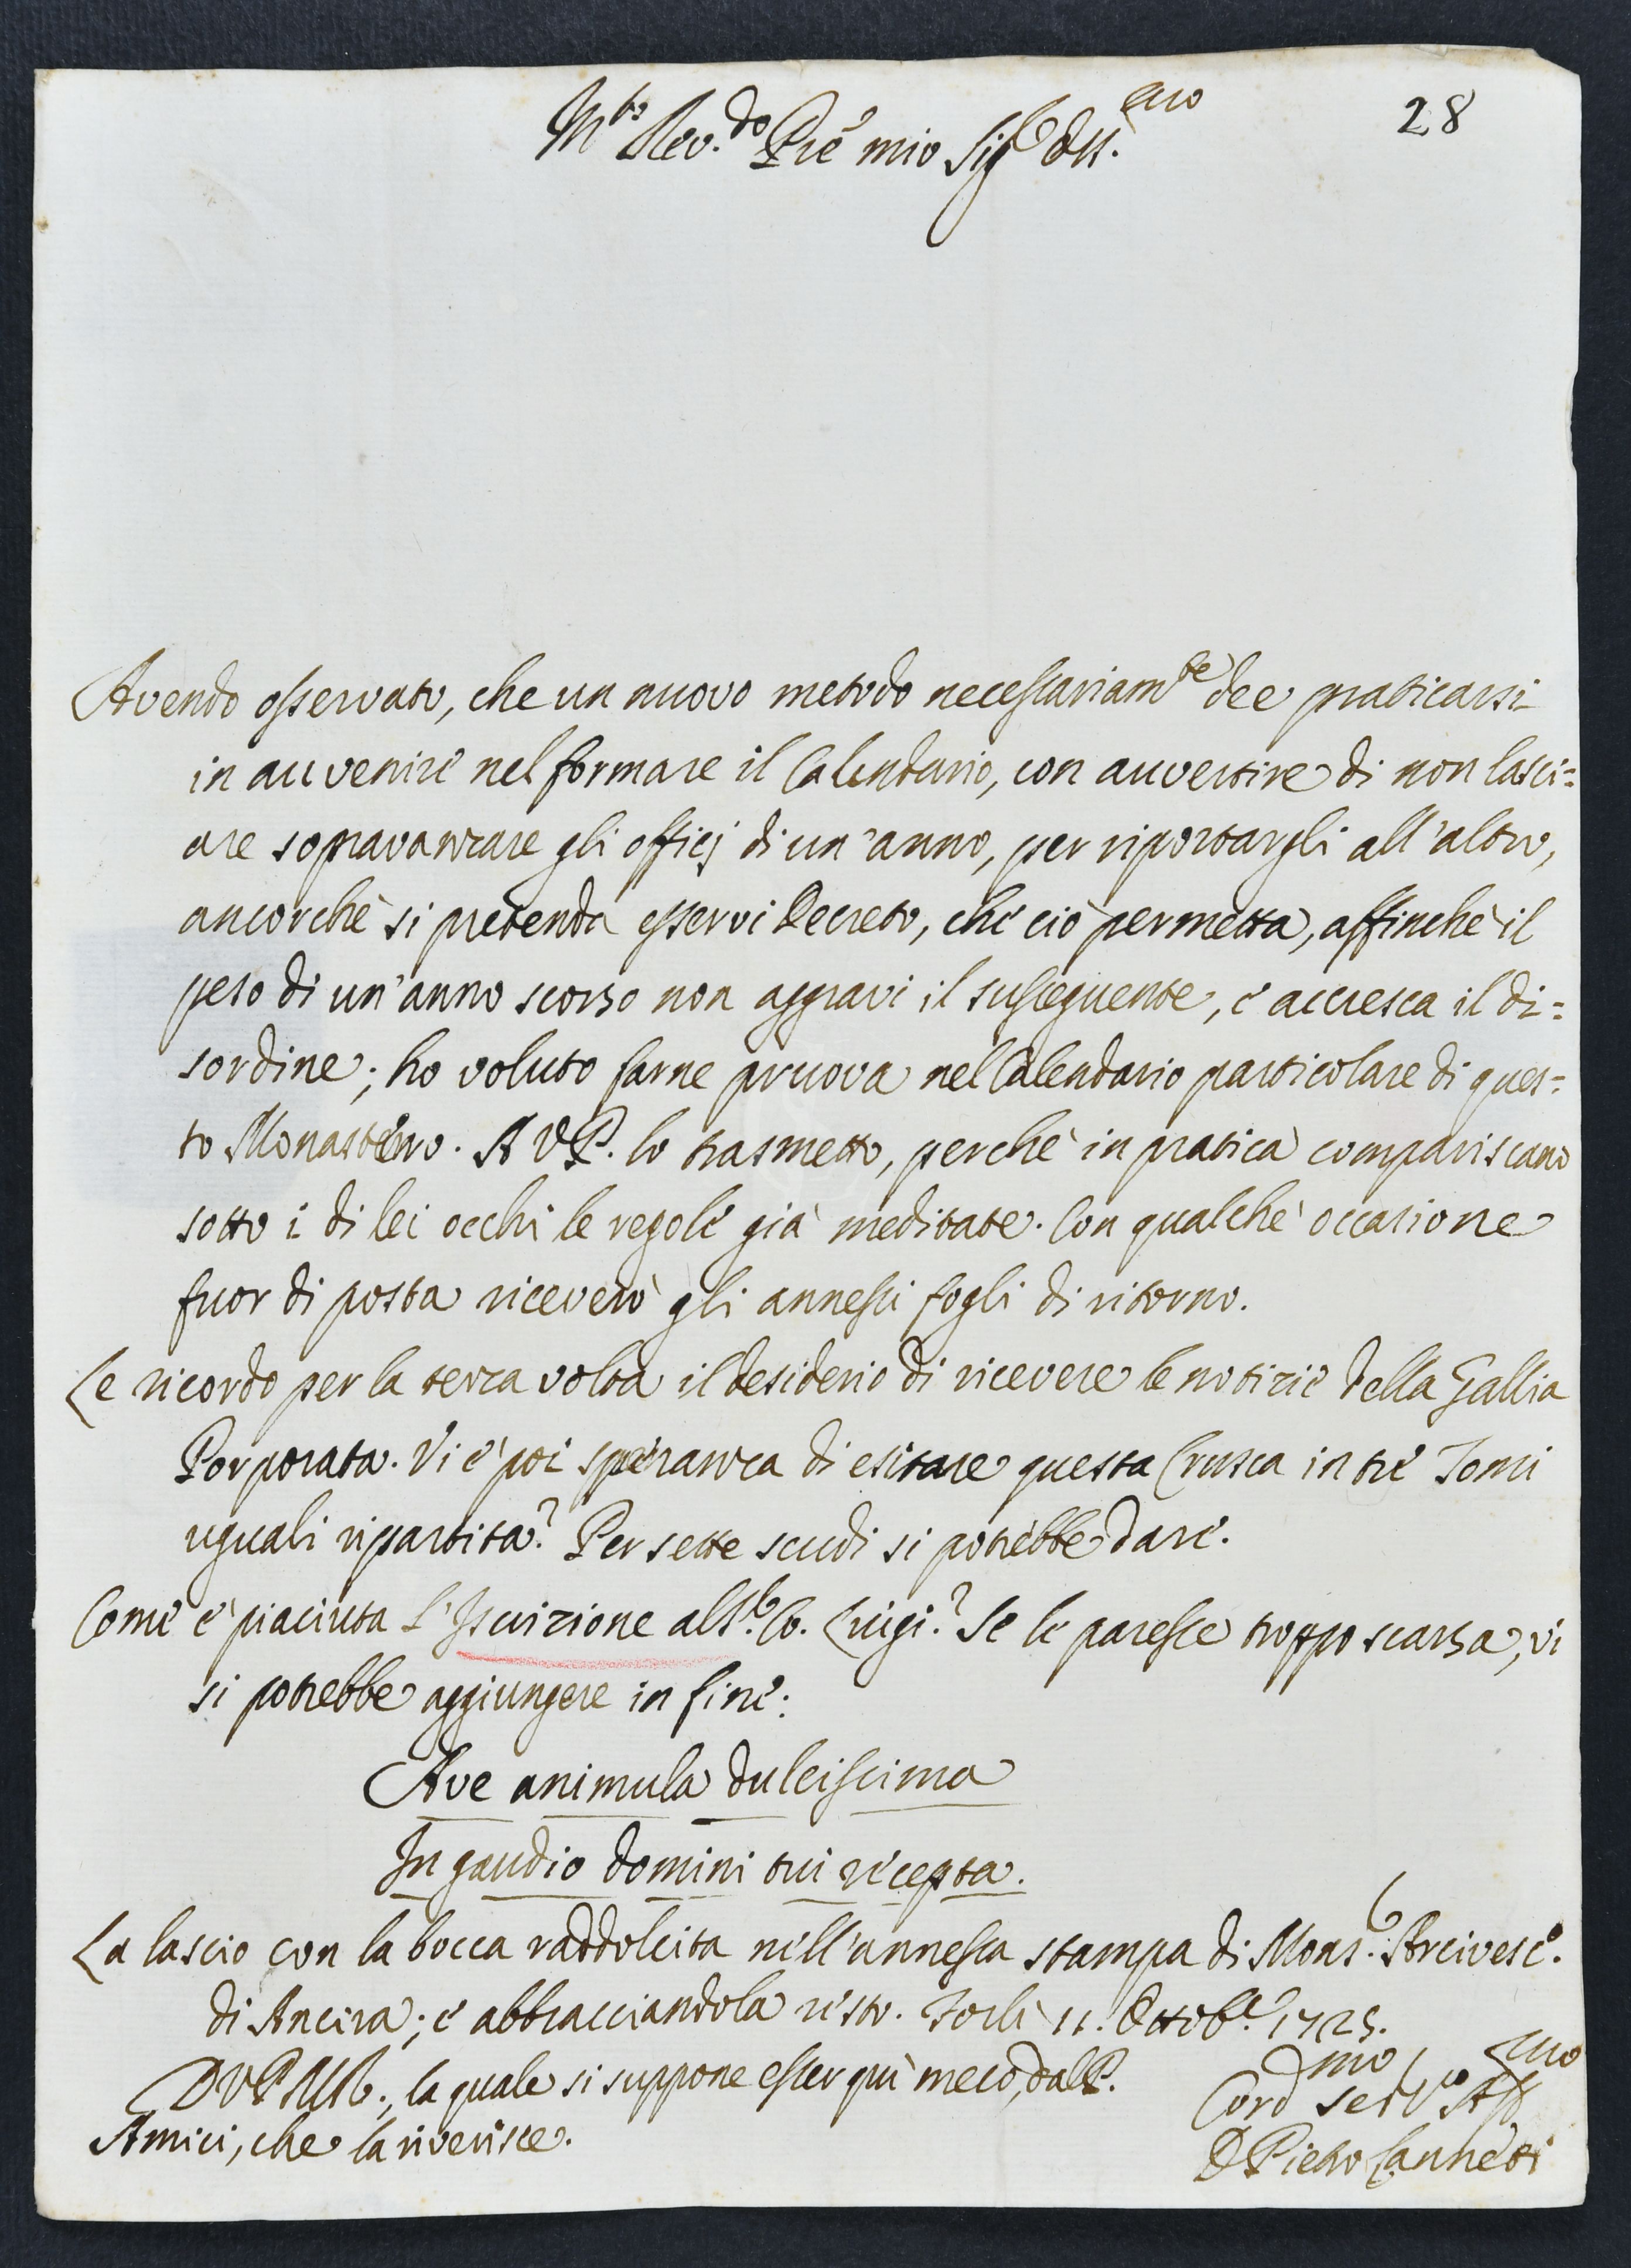 28
M.to Rev.do Pre mio Sig.r Oss.mo
Avendo osservato, che un nuovo metodo necessariam.te dee praticarsi
in auvenire nel formare il Calendario, con auvertire di non lasci=
are sopravanzare gli officj di un'anno, per riportargli all'altro,
ancorchè si pretenda esservi Decreto, che ciò permetta, affinchè il
peso di un'anno scorso non aggravi il susseguente, e accresca il di=
sordine; ho voluto farne pruova nel Calendario particolare di ques=
to Monastero. A V.P. lo trasmetto, perchè in pratica compariscano
sotto i di lei occhi le regole già meditate. Con qualche occasione
fuor di posta riceverò gli annessi fogli di ritorno.
Le ricordo per la terza volta il desiderio di ricevere le notizie della Gallia
Porporata. Vi è poi speranza di esitare questa Crusca in tre Tomi
uguali ripartita? Per sette scudi si potrebbe dare.
Come è piaciuta l'Iscrizione al S.r Co. Luigi? Se le paresse troppo scarsa, vi
si potrebbe aggiungere in fine:
Ave animula dulcissima
In gaudio domini tui recepta.
La lascio con la bocca raddolcita nell'annessa stampa di Mons.r Arcivesc.o
di Ancira; e abbracciandola resto. Forlì 11. Ottob.e 1725.
D V P M R., la quale si suppone esser quì meco, dal P.
Amici, che la riverisce.
Cord.mo Ser.vo Aff.mo
D Pietro Canneti